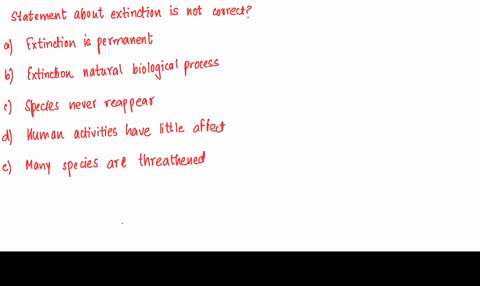 Statement about extinction is not correct?
a) Extinction is permanent
b) Extinction natural biological process
c) Species never reappear
d) Human activities have little affect
e) Many species are threathened